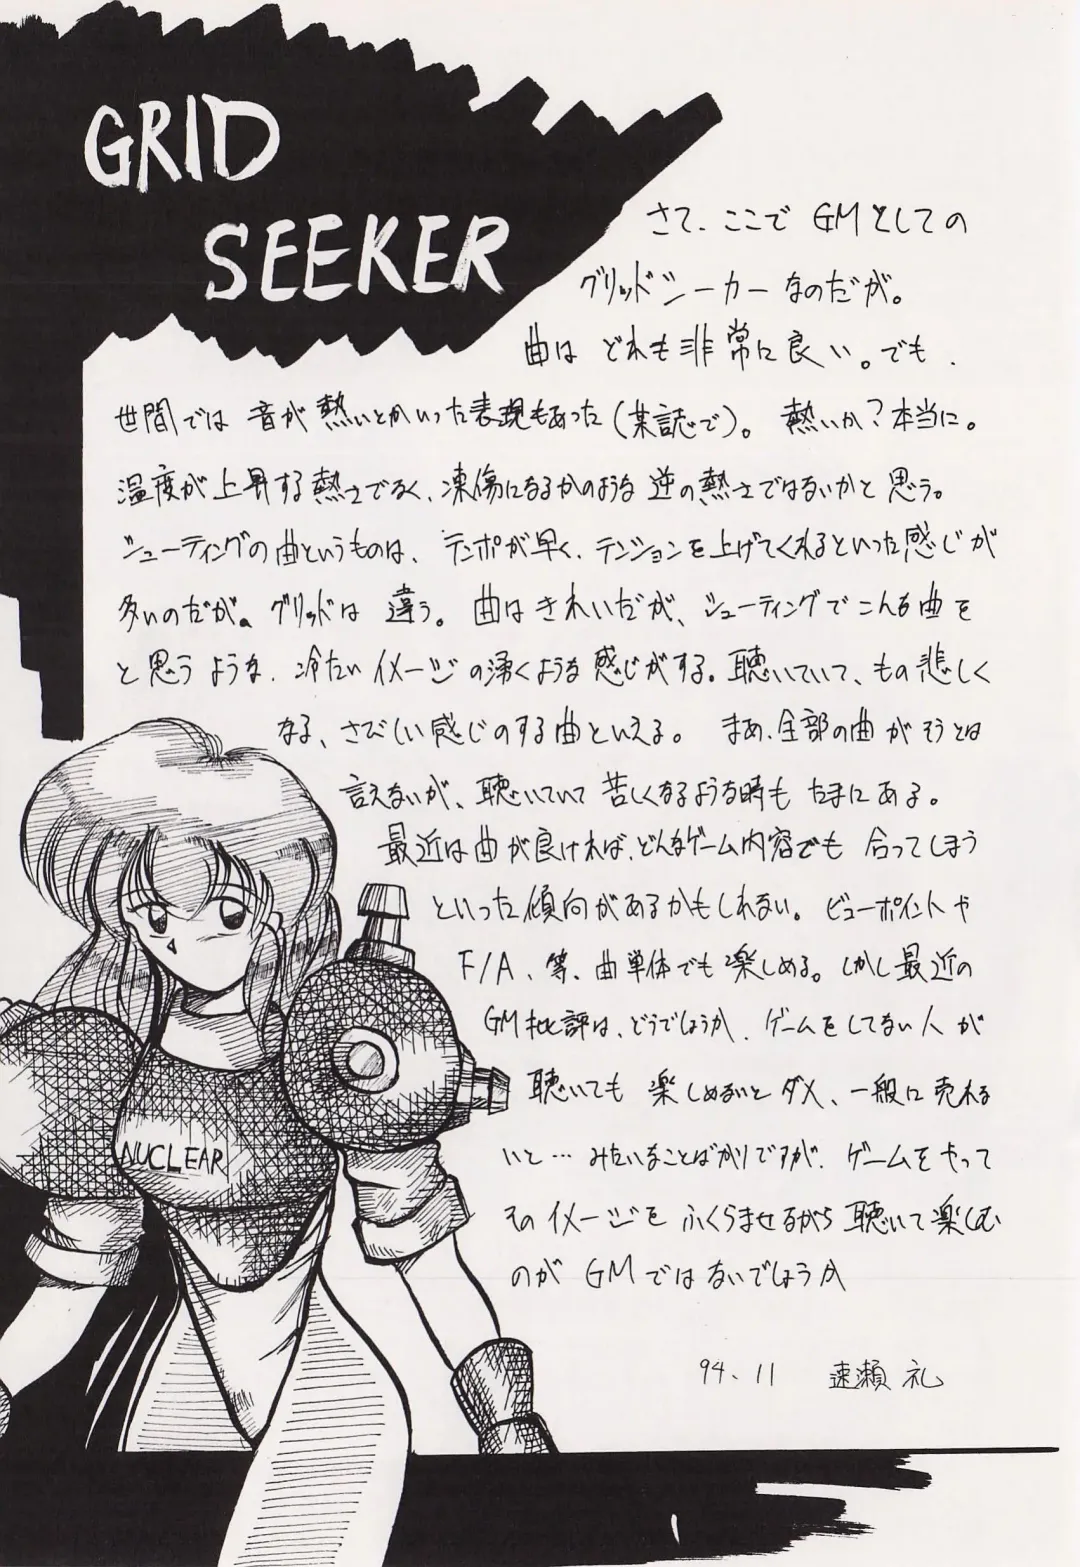 GRID
SEEKER
さて、ここで GMとしての
グリッドシーカーなのだが。
曲は どれも非常に良い。でも、
世間では 音が 熱いとかいった表現もあった(某誌で)。 熱いか?本当に。
温度が上昇する熱さでなく、凍傷になるかのような 逆の熱さではないかと 思う。
シューティングの曲というものは、テンポが早く、テンションを上げてくれるといった感じが
多いのだが。グリッドは 違う。曲はきれいだが、シューティングでこんな曲を
と思うような、冷たいイメージの湧くような感じがする。聴いていて、もの悲しく
なる、さびしい感じのする曲といえる。 まあ、全部の曲がそうとは
言えないが、聴いていて 苦しくなるような時も たまにある。
最近は曲が良ければ、どんなゲーム内容でも 合ってしまう
といった傾向があるかもしれない。ビューポイントや
F/A、等、曲単体でも楽しめる。しかし最近の
GM批評は、どうでしょうか、ゲームをしてない人が
聴いても 楽しめないとダメ、一般に売れな
いと… みたいなことばかりですが、ゲームをやって
そのイメージを ふくらませながら 聴いて楽しむ
のが GMではないでしょうか
94、11 速瀬 礼
NUCLEAR